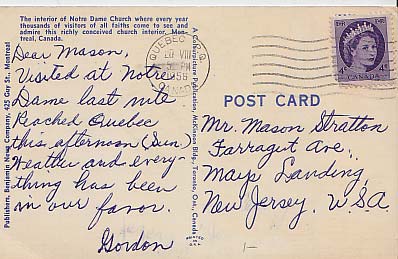 The interior of Notre Dame Church where every year
thousands of visitors of all faiths come to see and
admire this richly conceived church interior. Mon-
treal, Canada.
Dear Mason,
Visited at Notre
Dame last nite
Reached Quebec
this afternoon (Sun.
Weather and every-
thing has been
in our favor.
Gordon
Publishers, Benjamin News Company, 425 Guy St., Montreal
A Colourpicture Publication, McKinnon Bldg., Toronto, Ont., Canada
PRINTED
U.S.A.
QUEBEC P.Q.
VIII
5 PM
1958
CANADA
CANADA
4¢
POST CARD
Mr. Mason Stratton
Farragut Ave.,
Mays Landing,
New Jersey, U.S.A.